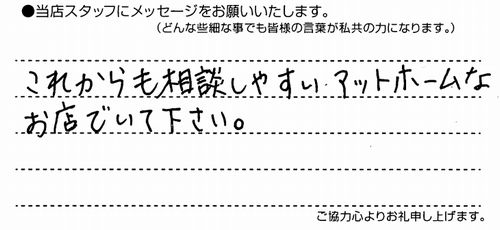 ●当店スタッフにメッセージをお願いいたします。
（どんな些細な事でも皆様の言葉が私共の力になります。）
これからも相談しやすい アットホームな
お店でいて下さい。
ご協力心よりお礼申し上げます。